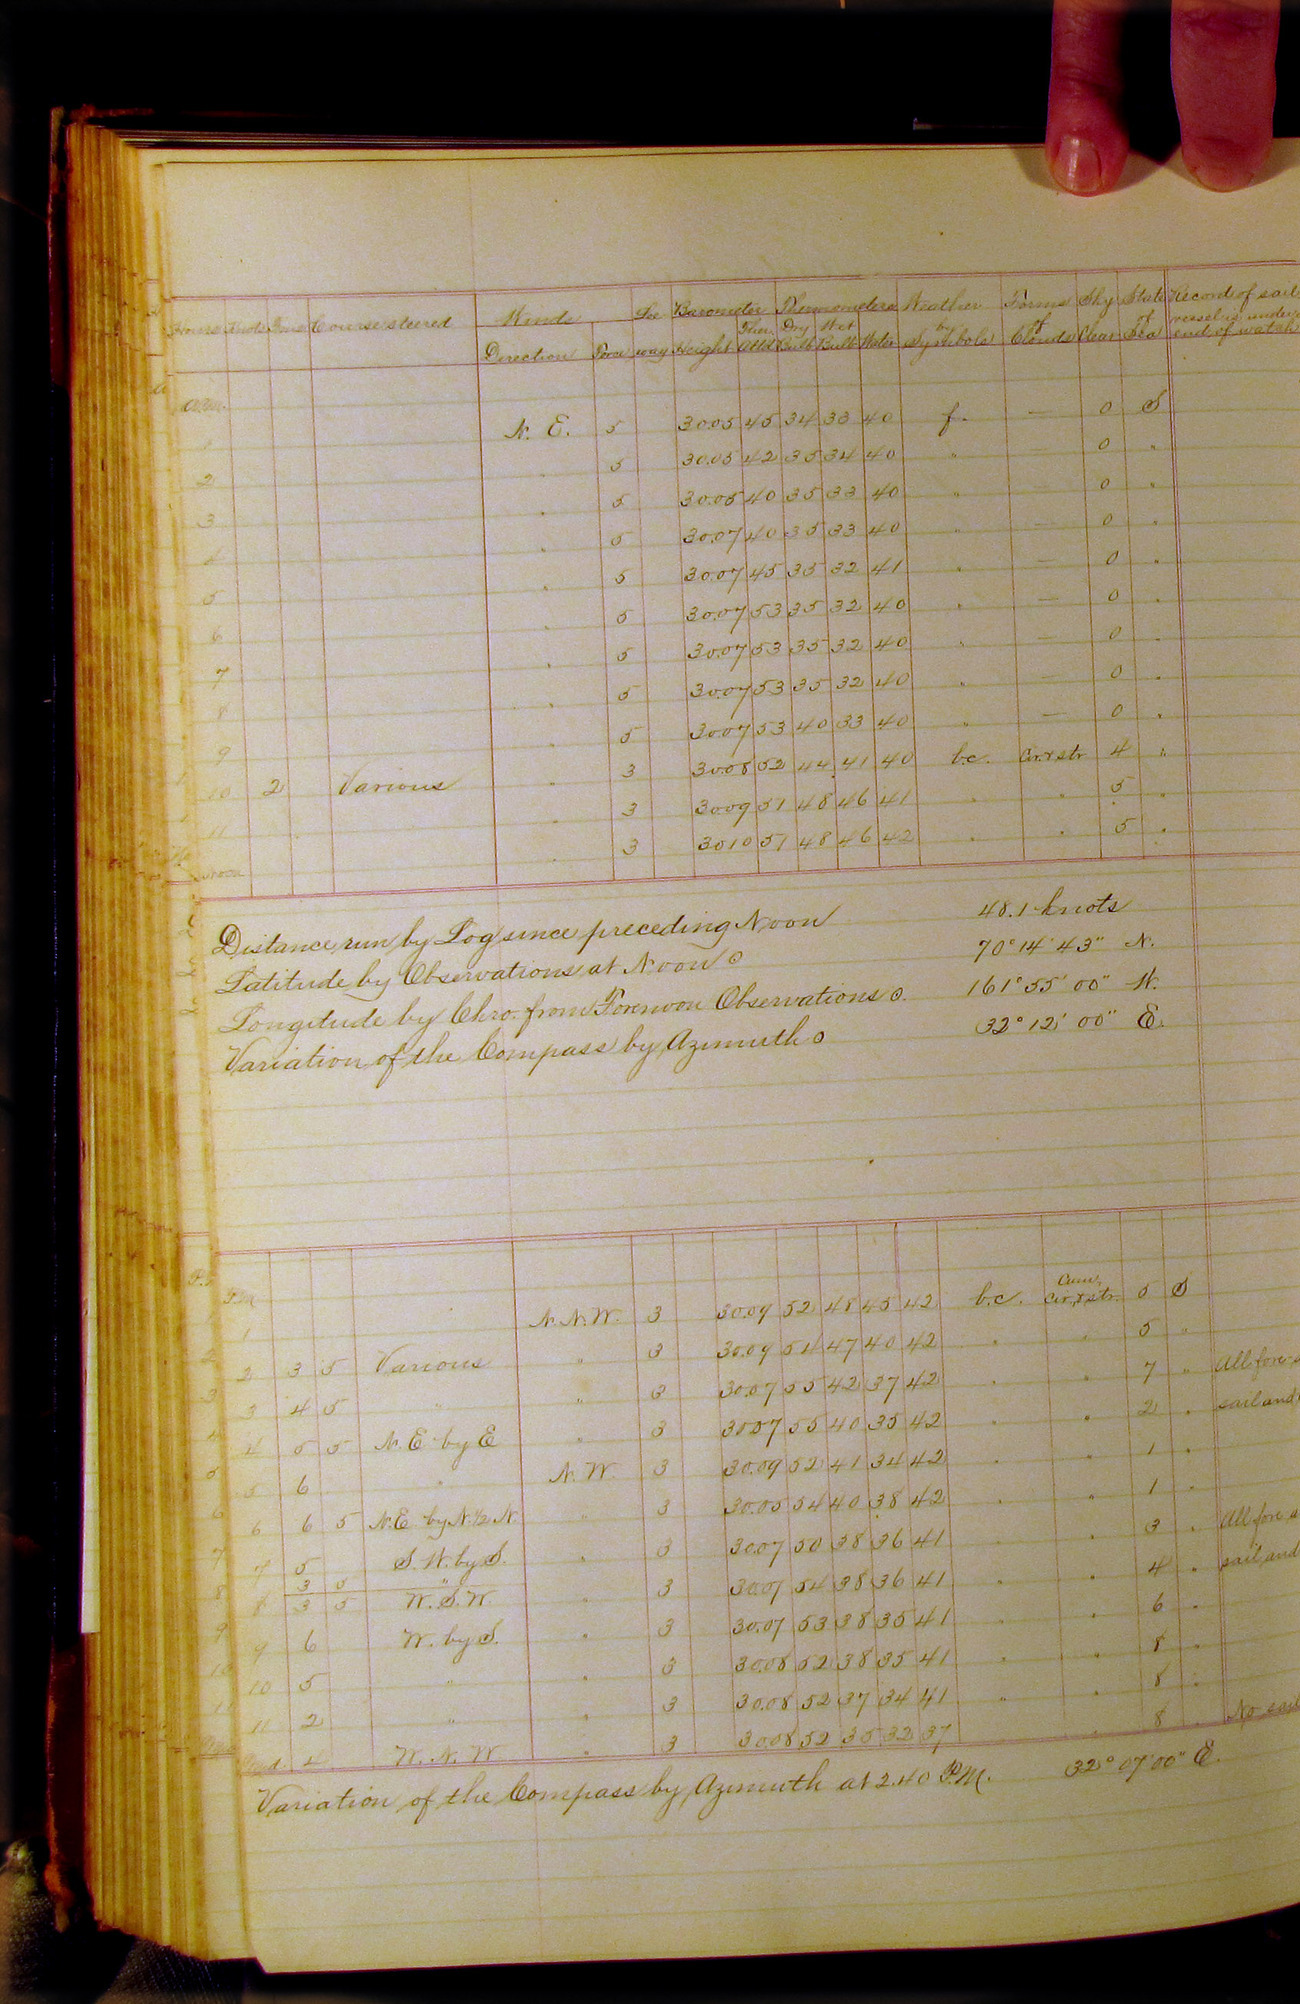 Hours Knots Tenths Course steered Winds Lee Barometer Thermometers Weather Forms Sky State Record of sail
Direction Force way Height Ther. Attd Dry Bulb Wet Bulb Water by symbols of Clouds Clear of Sea vessel is under end of watch
A.M.
1 N. E. 5 30.05 45 34 33 40 f. — 0 S
2 " 5 30.05 42 35 34 40 " — 0 "
3 " 5 30.05 40 35 33 40 " — 0 "
4 " 5 30.07 40 35 33 40 " — 0 "
5 " 5 30.07 45 35 32 41 " — 0 "
6 " 5 30.07 53 35 32 40 " — 0 "
7 " 5 30.07 53 35 32 40 " — 0 "
8 " 5 30.07 53 35 32 40 " — 0 "
9 " 5 30.07 53 40 33 40 " — 0 "
10 2 Various " 3 30.08 52 44 41 40 b.c. Cir. & str 4 "
11 " " 3 30.09 51 48 46 41 " " 5 "
Noon " 3 30.10 51 48 46 42 " " 5 "
Distance run by Log since preceding Noon 48.1 knots
Latitude by Observations at Noon ⊙ 70° 14' 43" N.
Longitude by Chro. from Forenoon Observations ⊙. 161° 55' 00" W.
Variation of the Compass by Azimuth ⊙ 32° 12' 00" E.
P.M
1 N. N. W. 3 30.09 52 48 45 42 b.c. Cum, Cir, & str. 5 S
2 3 5 Various " 3 30.09 54 47 40 42 " " 5 "
3 4 5 " " 3 30.07 55 42 37 42 " " 7 " All fore
4 5 5 N. E by E " 3 30.07 55 40 35 42 " " 2 " sail and
5 6 " N. W. 3 30.09 52 41 34 42 " " 1 "
6 6 5 N.E by N. 1/2 N. " 3 30.05 54 40 38 42 " " 1 "
7 5 S. W. by S. " 3 30.07 50 38 36 41 " 3 " All fore
3 5 "
8 3 5 W. S. W " 3 30.07 54 38 36 41 " " 4 " sail, and
9 6 W. by S. " 3 30.07 53 38 35 41 " 6 "
10 5 " " 3 30.08 52 38 35 41 " " 8 "
11 2 " " 3 30.08 52 37 34 41 " " 8 "
Mid. 4 W. N. W " 3 30.08 52 35 32 37 " 8 " No sail
Variation of the Compass by Azimuth at 2.40 P.M. 32° 07' 00" E.